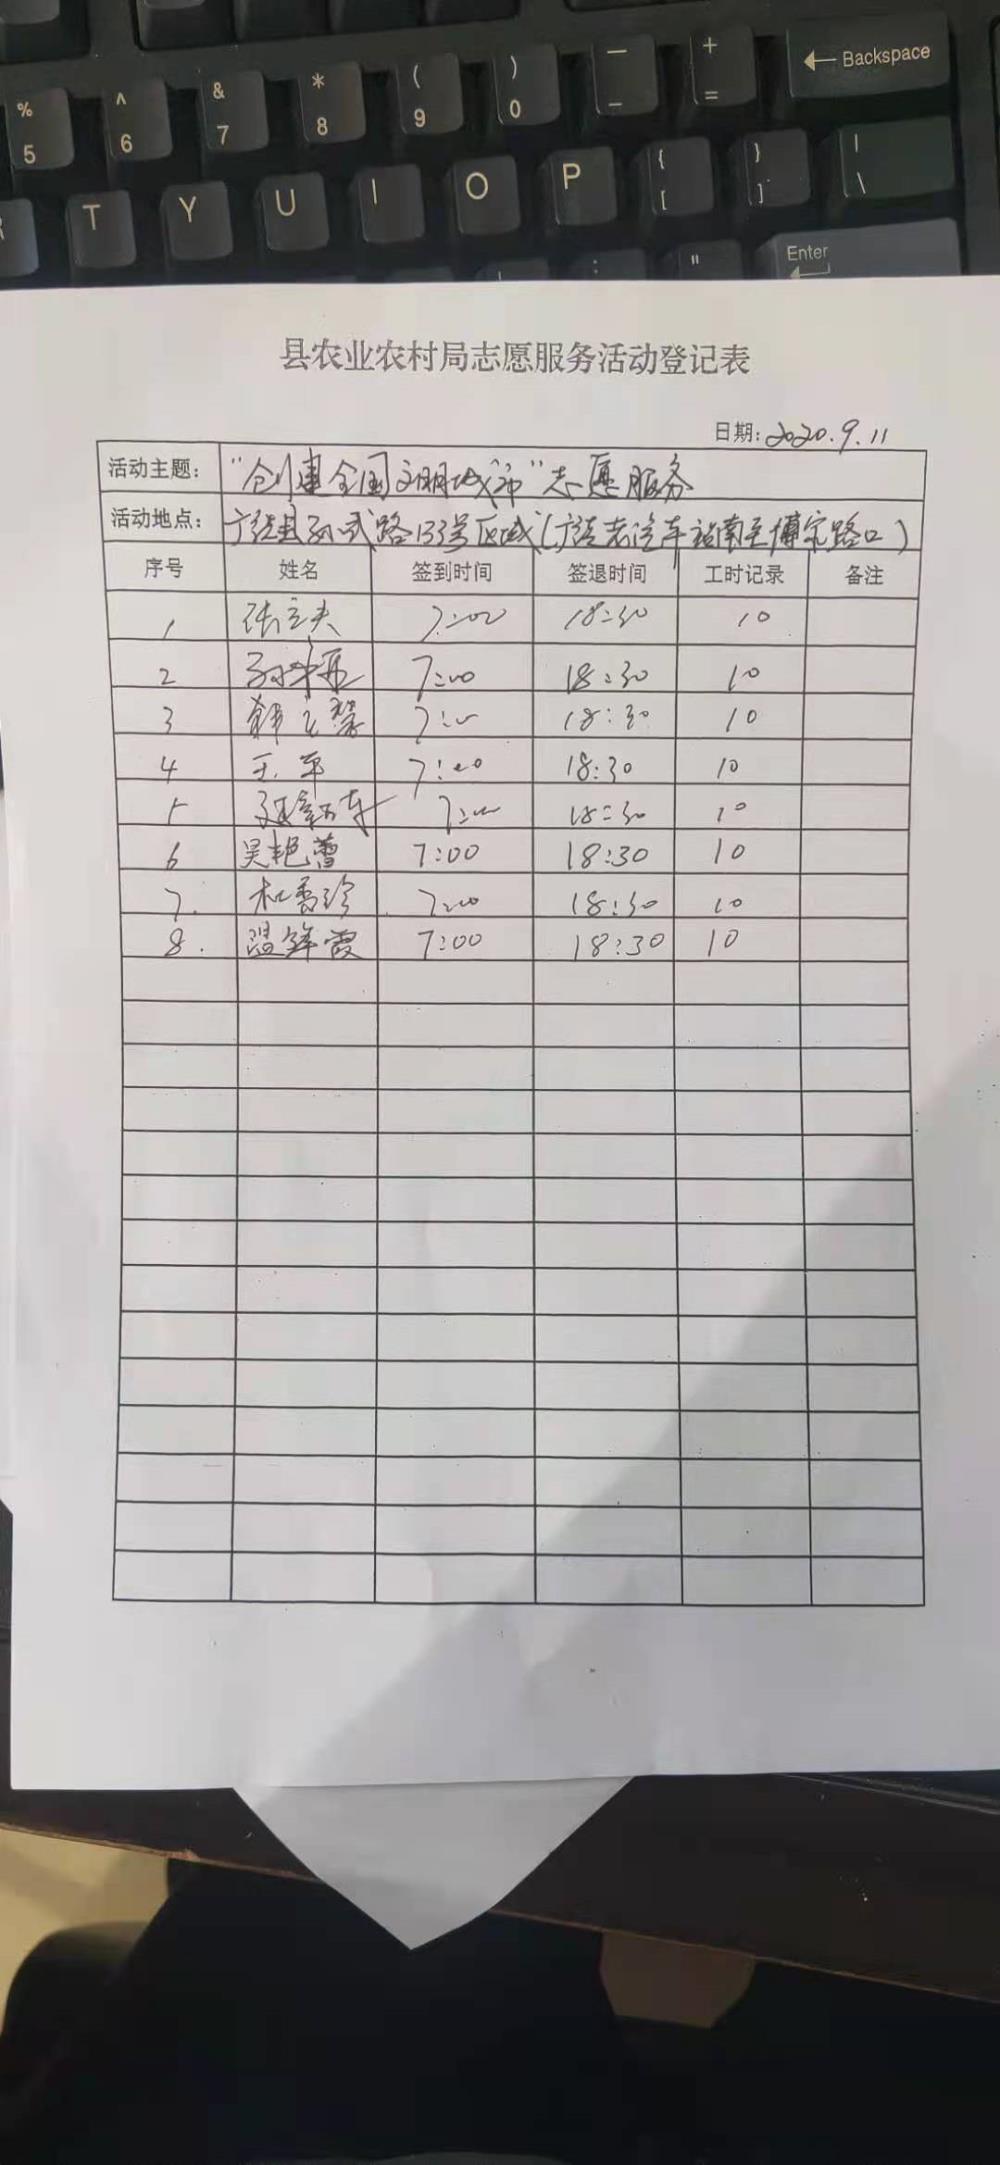 % 5 ^ 6 & 7 * 8 ( 9 ) 0 — - + = ← Backspace
R T Y U I O P { [ } ] | \
: " Enter
县农业农村局志愿服务活动登记表
日期: 2020.9.11
活动主题: "创建全国文明城市"志愿服务
活动地点: 广饶县孙武路133号区域(广饶老汽车站南至博家路口)
序号 姓名 签到时间 签退时间 工时记录 备注
1 张立夫 7:00 18:30 10
2 7:00 18:30 10
3 7:00 18:30 10
4 王军 7:00 18:30 10
5 7:00 18:30 10
6 吴艳蕾 7:00 18:30 10
7. 和香珍 7:00 18:30 10
8. 温锋霞 7:00 18:30 10